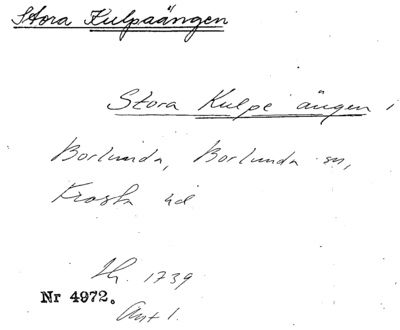 Stora Kulpaängen
Stora Kulpe ängen,
Borlunda, Borlunda sn,
Frosta hd
Lh. 1739
Nr 4972.
Akt 1.